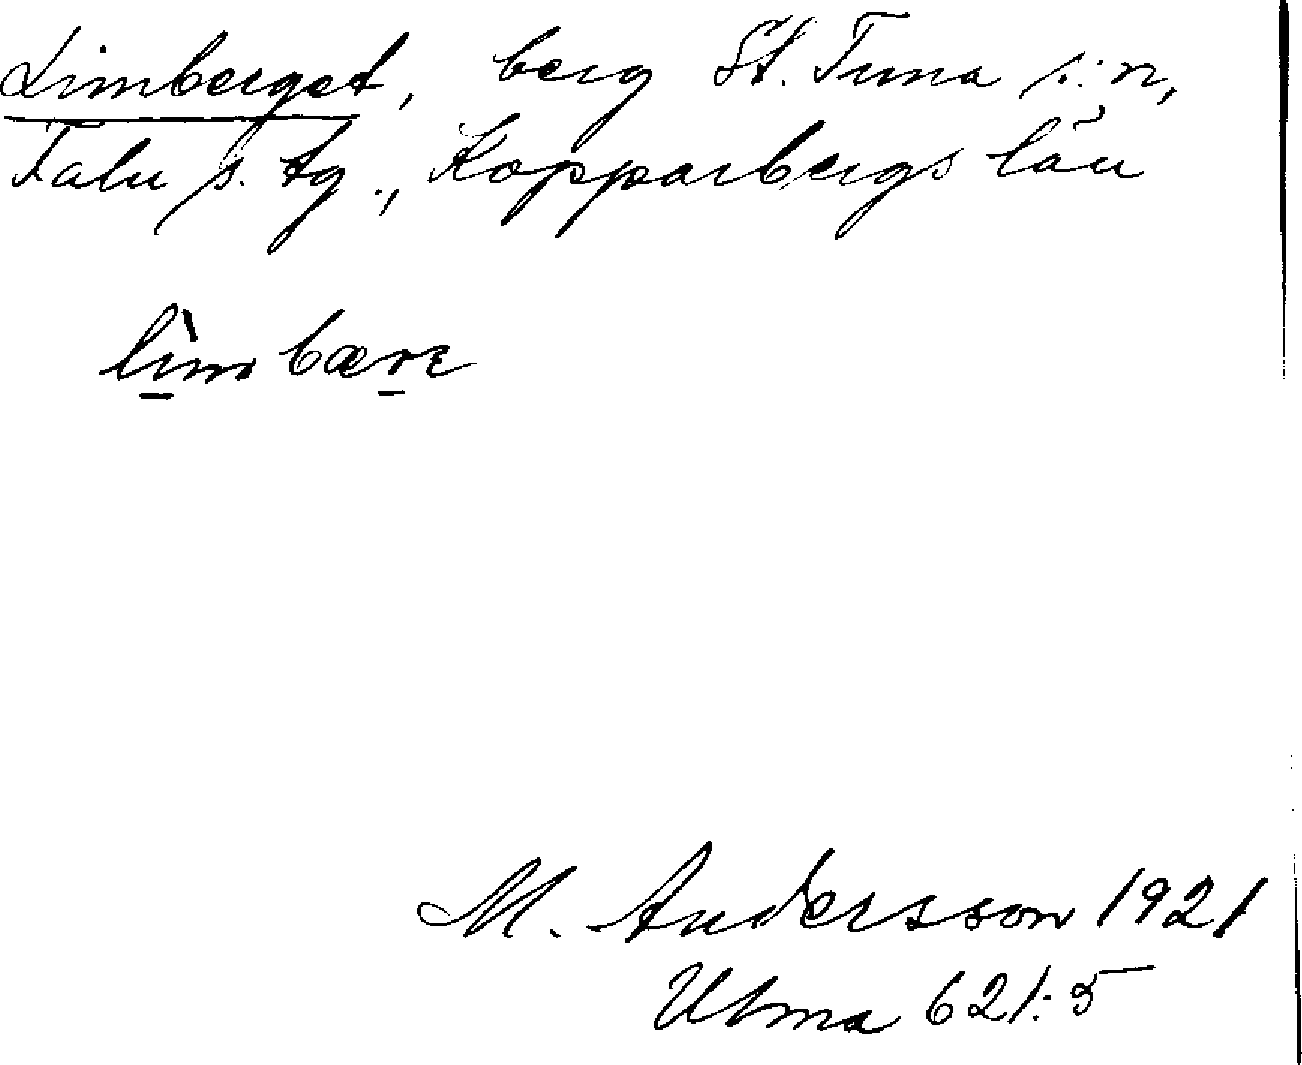 Limberget, berg St. Tuna s:n,
Falu s. tg., Kopparbergs län
lìmbærɛ
M. Andersson 1921
Ulma 621:5